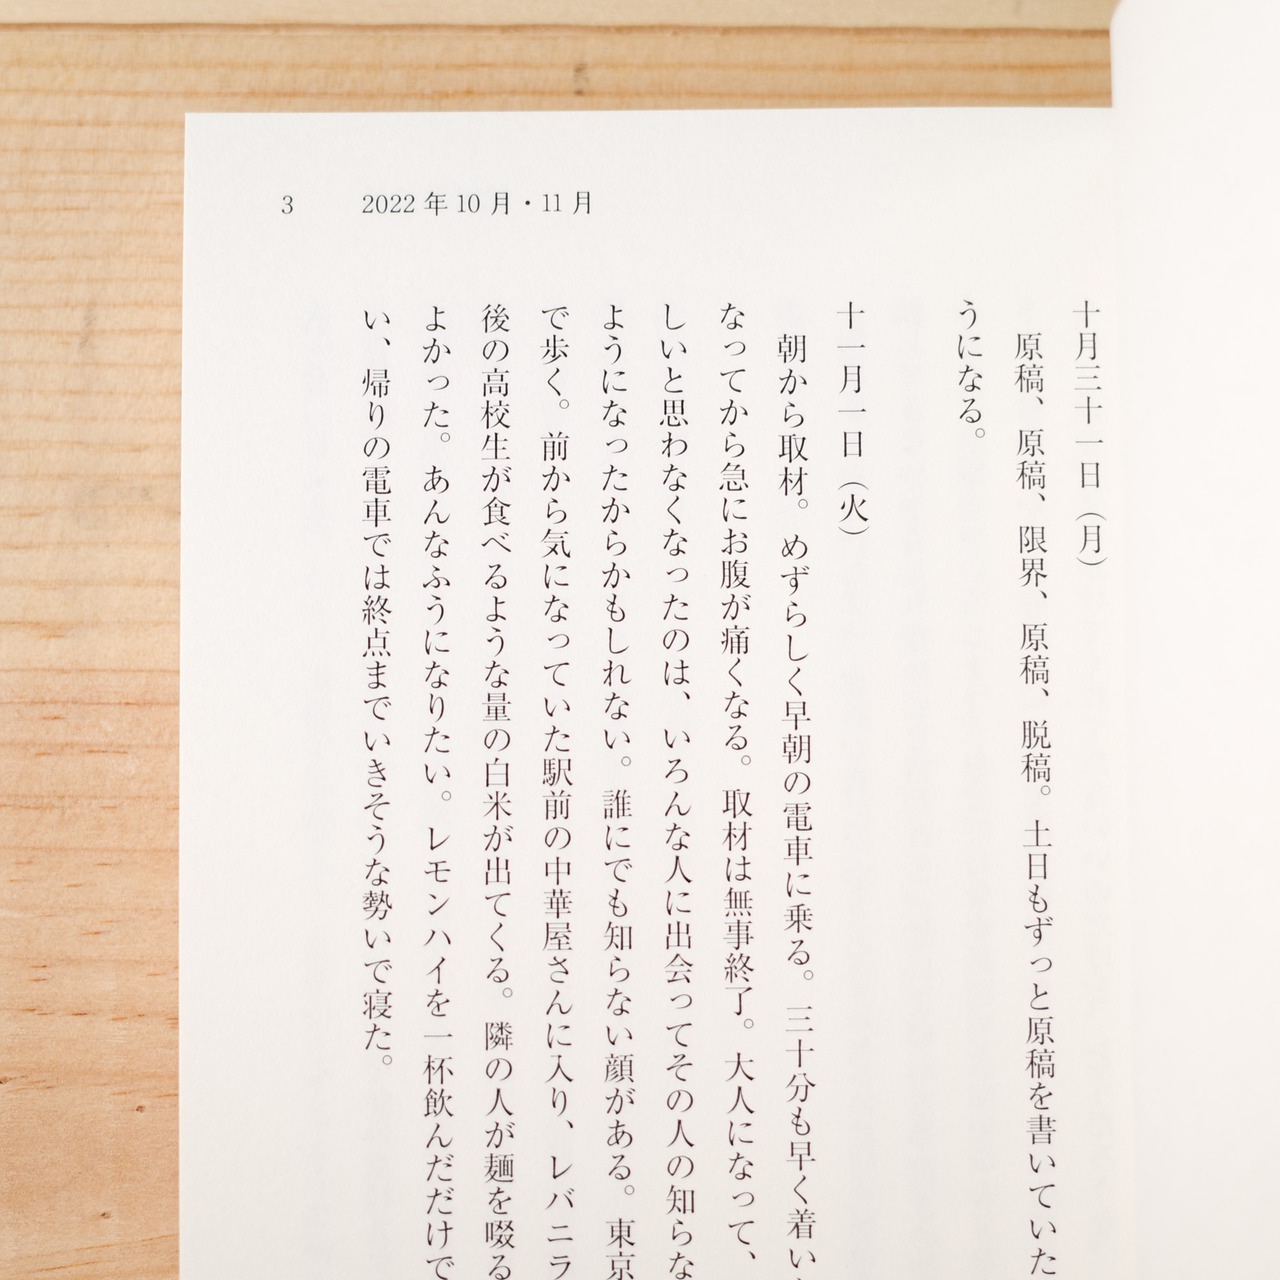 3 2022年10月・11月
十月三十一日（月）
原稿、原稿、限界、原稿、脱稿。土日もずっと原稿を書いていた
うになる。
十一月一日（火）
朝から取材。めずらしく早朝の電車に乗る。三十分も早く着い
なってから急にお腹が痛くなる。取材は無事終了。大人になって、
しいと思わなくなったのは、いろんな人に出会ってその人の知らな
ようになったからかもしれない。誰にでも知らない顔がある。東京
で歩く。前から気になっていた駅前の中華屋さんに入り、レバニラ
後の高校生が食べるような量の白米が出てくる。隣の人が麺を啜る
よかった。あんなふうになりたい。レモンハイを一杯飲んだだけで
い、帰りの電車では終点までいきそうな勢いで寝た。